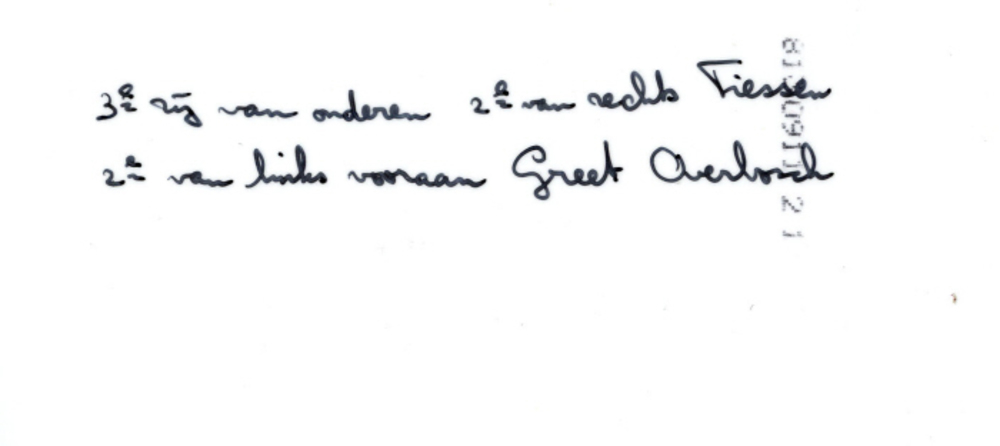 3e rij van onderen 2e van rechts Tiessen
2e van links vooraan Greet Averbosch